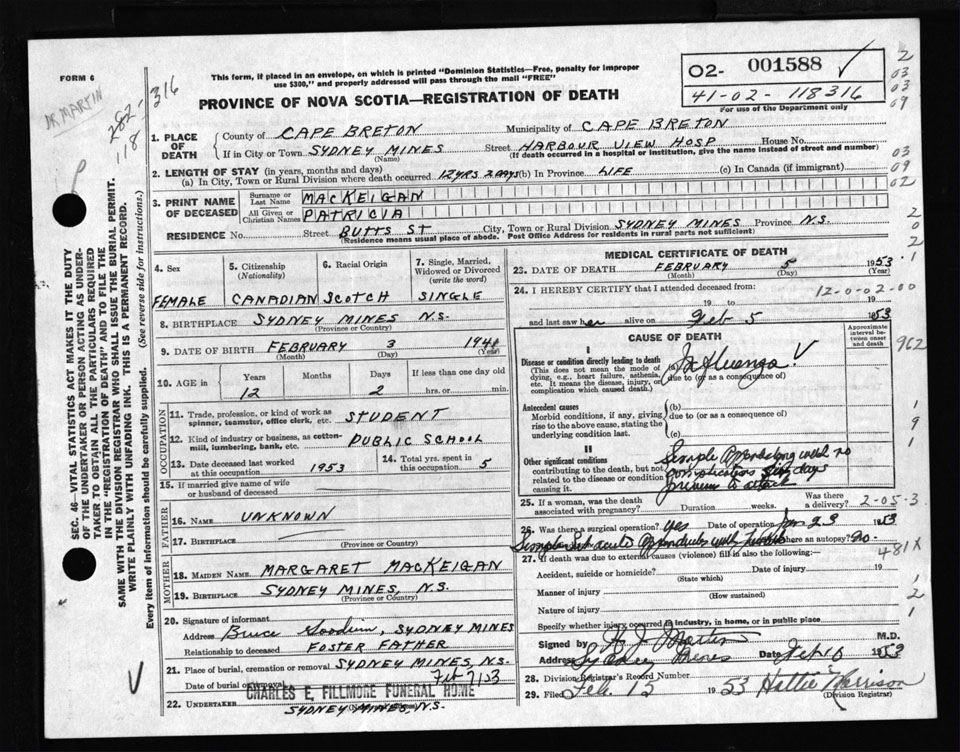 FORM 6
This form, if placed in an envelope, on which is printed "Dominion Statistics—Free, penalty for improper
use $300," and properly addressed will pass through the mail "FREE"
O2- 001588
41-02-118316
For use of the Department only
PROVINCE OF NOVA SCOTIA—REGISTRATION OF DEATH
DR MARTIN
282-
118
316
1. PLACE OF DEATH
County of CAPE BRETON Municipality of CAPE BRETON
If in City or Town SYDNEY MINES Street HARBOUR VIEW HOSP House No.
(Name) (If death occurred in a hospital or institution, give the name instead of street and number)
2. LENGTH OF STAY (in years, months and days)
(a) In City, Town or Rural Division where death occurred 12 YRS 2 DAYS (b) In Province LIFE (c) In Canada (if immigrant)
3. PRINT NAME OF DECEASED
Surname or Last Name MACKEIGAN
All Given or Christian Names PATRICIA
RESIDENCE No. Street BUTTS ST City, Town or Rural Division SYDNEY MINES Province N.S.
(Residence means usual place of abode. Post Office Address for residents in rural parts not sufficient)
4. Sex
FEMALE
5. Citizenship
(Nationality)
CANADIAN
6. Racial Origin
SCOTCH
7. Single, Married, Widowed or Divorced
(write the word)
SINGLE
8. BIRTHPLACE SYDNEY MINES N.S.
(Province or Country)
9. DATE OF BIRTH FEBRUARY 3 1941
(Month) (Day) (Year)
10. AGE in Years Months Days If less than one day old
12 2 hrs. or min.
OCCUPATION
11. Trade, profession, or kind of work as
spinner, teamster, office clerk, etc. STUDENT
12. Kind of industry or business, as cotton-
mill, lumbering, bank, etc. PUBLIC SCHOOL
13. Date deceased last worked
at this occupation 1953
14. Total yrs. spent in
this occupation 5
15. If married give name of wife
or husband of deceased
FATHER
16. NAME UNKNOWN
17. BIRTHPLACE
(Province or Country)
MOTHER
18. MAIDEN NAME MARGARET MACKEIGAN
19. BIRTHPLACE SYDNEY MINES, N.S.
(Province or Country)
20. Signature of informant
Address Bruce SYDNEY MINES
Relationship to deceased FOSTER FATHER
21. Place of burial, cremation or removal SYDNEY MINES, N.S.
Date of burial or removal Feb 7/53
22. UNDERTAKER CHARLES E. FILLMORE FUNERAL HOME
SYDNEY MINES, N.S.
MEDICAL CERTIFICATE OF DEATH
23. DATE OF DEATH FEBRUARY 5 1953
(Month) (Day) (Year)
24. I HEREBY CERTIFY that I attended deceased from:
12-0-02-00
19 to 19
and last saw her alive on Feb 5 1953
CAUSE OF DEATH
Approximate interval between onset and death
I
Disease or condition directly leading to death
(This does not mean the mode of
dying, e.g., heart failure, asthenia,
etc. It means the disease, injury, or
complication which caused death.)
(a) Influenza
due to (or as a consequence of)
Antecedent causes
Morbid conditions, if any, giving
rise to the above cause, stating the
underlying condition last.
(b)
due to (or as a consequence of)
(c)
II
Other significant conditions
contributing to the death, but not
related to the disease or condition
causing it.
Simple with no
complications days
to attack
25. If a woman, was the death
associated with pregnancy? Duration weeks. Was there a delivery?
2-05-3
26. Was there a surgical operation? yes Date of operation Jan 29 1953
Was there an autopsy? no
27. If death was due to external causes (violence) fill in also the following:—
481X
Accident, suicide or homicide? Date of injury 19
(State which)
Manner of injury
(How sustained)
Nature of injury
Specify whether injury occurred in industry, in home, or in public place
Signed by Martin M.D.
Address Sydney Mines Date Feb 10 1953
28. Division Registrar's Record Number
29. Filed Feb 15 1953 Hattie Morrison
(Division Registrar)
SEC. 46—VITAL STATISTICS ACT MAKES IT THE DUTY
OF THE UNDERTAKER OR PERSON ACTING AS UNDER-
TAKER TO OBTAIN ALL THE PARTICULARS REQUIRED
IN THE "REGISTRATION OF DEATH" AND TO FILE THE
SAME WITH THE DIVISION REGISTRAR WHO SHALL ISSUE THE BURIAL PERMIT.
WRITE PLAINLY WITH UNFADING INK. THIS IS A PERMANENT RECORD.
Every item of information should be carefully supplied. (See reverse side for instructions.)
2
03
03
09
03
09
02
2
0
2
1
962
1
9
1
1
2
1